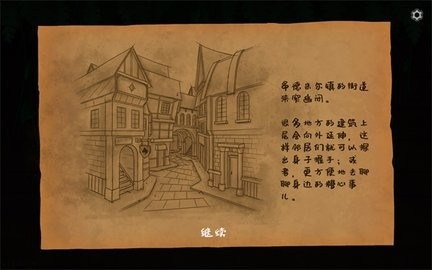 德尔镇的街道
窄幽闭。
很多地方的建筑上
层会向外延伸，这
样邻居们就可以探
出身子握手；或
者，更方便地去聊
聊身边的糟心事
儿。
继续